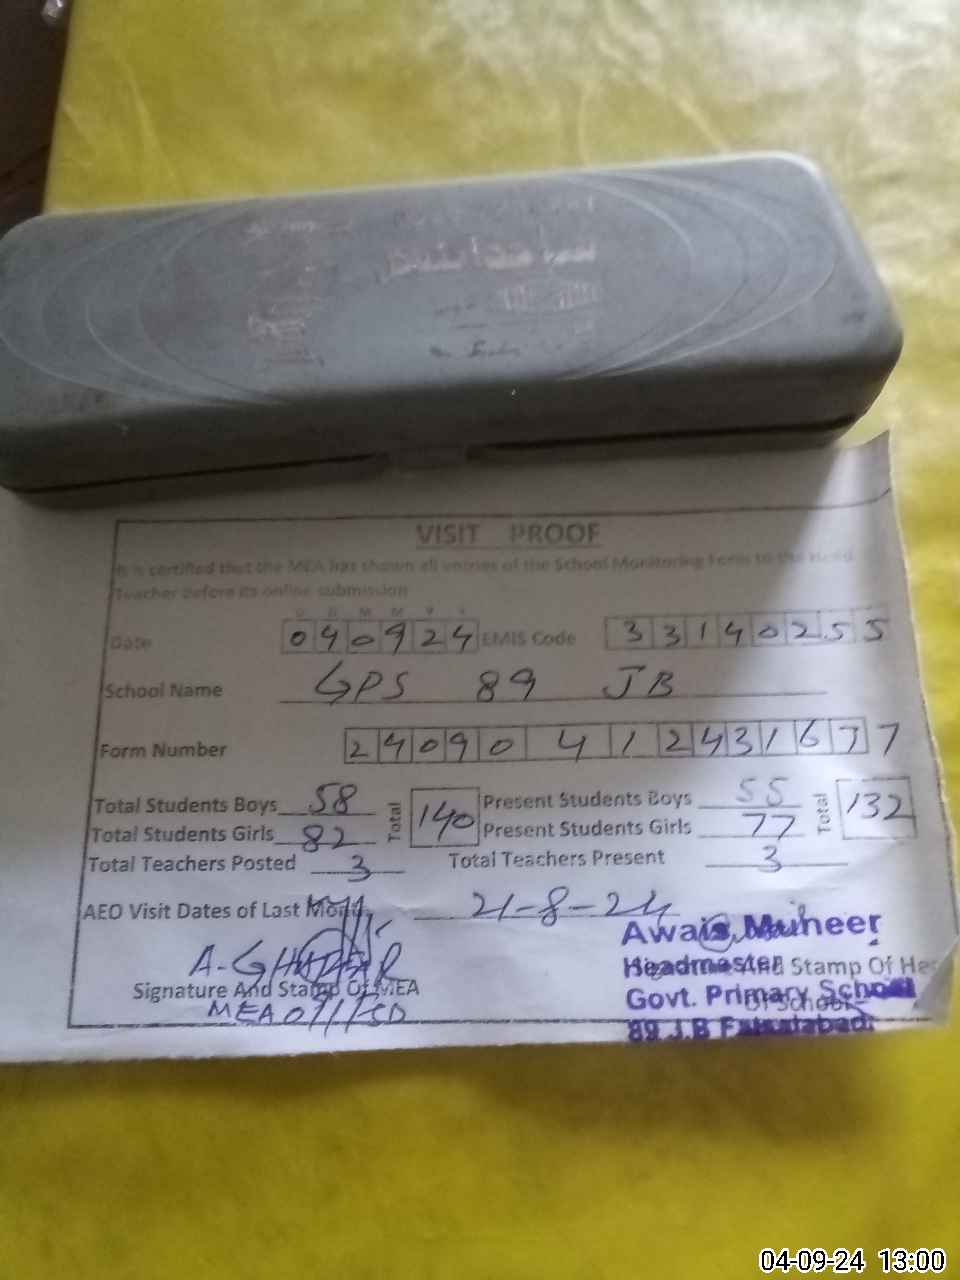 VISIT PROOF
It is certified that the MEA has shown all entries of the School Monitoring Form to the Head
Teacher before its online submission
D D M M Y Y
Date 040924 EMIS Code 33140255
School Name GPS 89 JB
Form Number 2409041243167 7
Total Students Boys 58 Total 140 Present Students Boys 55 Total 132
Total Students Girls 82 Present Students Girls 77
Total Teachers Posted 3 Total Teachers Present 3
AEO Visit Dates of Last Month 21-8-24
A-GHAFAR
Signature And Stamp Of MEA
Awais Muneer
Headmaster
And Stamp Of
Govt. Primary School
Of School
89 J.B Faisalabad
04-09-24 13:00